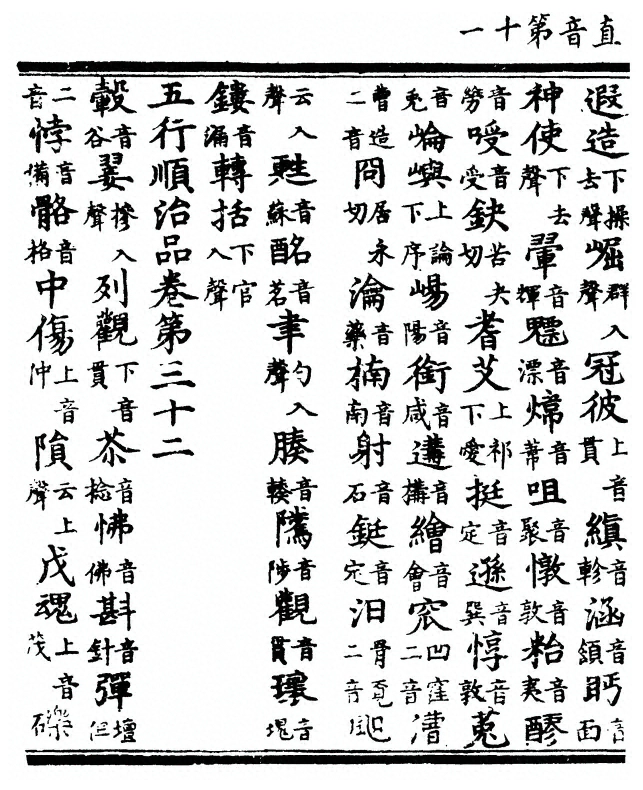 直音第十一
遐造下操去聲崛群入聲冠彼上音貫縝音軫涵音頷眄音面
神使下去聲翬音輝魒音漂煒音葦咀音聚憞音敦音夷醪
音勞音受缺苦夬切耆艾上祁下愛挺音定遜音巽惇音敦菟
音兎崘嶼上論下序崵音陽銜音咸遘音搆繪音會窊凹窪二音漕
曹造二音冏居永切瀹音藥楠音南射音石鋌音定汩骨覓二音
云入聲甦音蘇酩音茗聿勺入聲腠音輳隲音陟觀音貫瓌音瑰
鏤音漏轉括下官入聲
五行順治品卷第三十二
轂音谷翣摻入聲列觀下音貫苶音捻怫音佛斟音針彈壇但
二音悖音備骼音格中傷上音沖隕云上聲戊魂上音茂礫